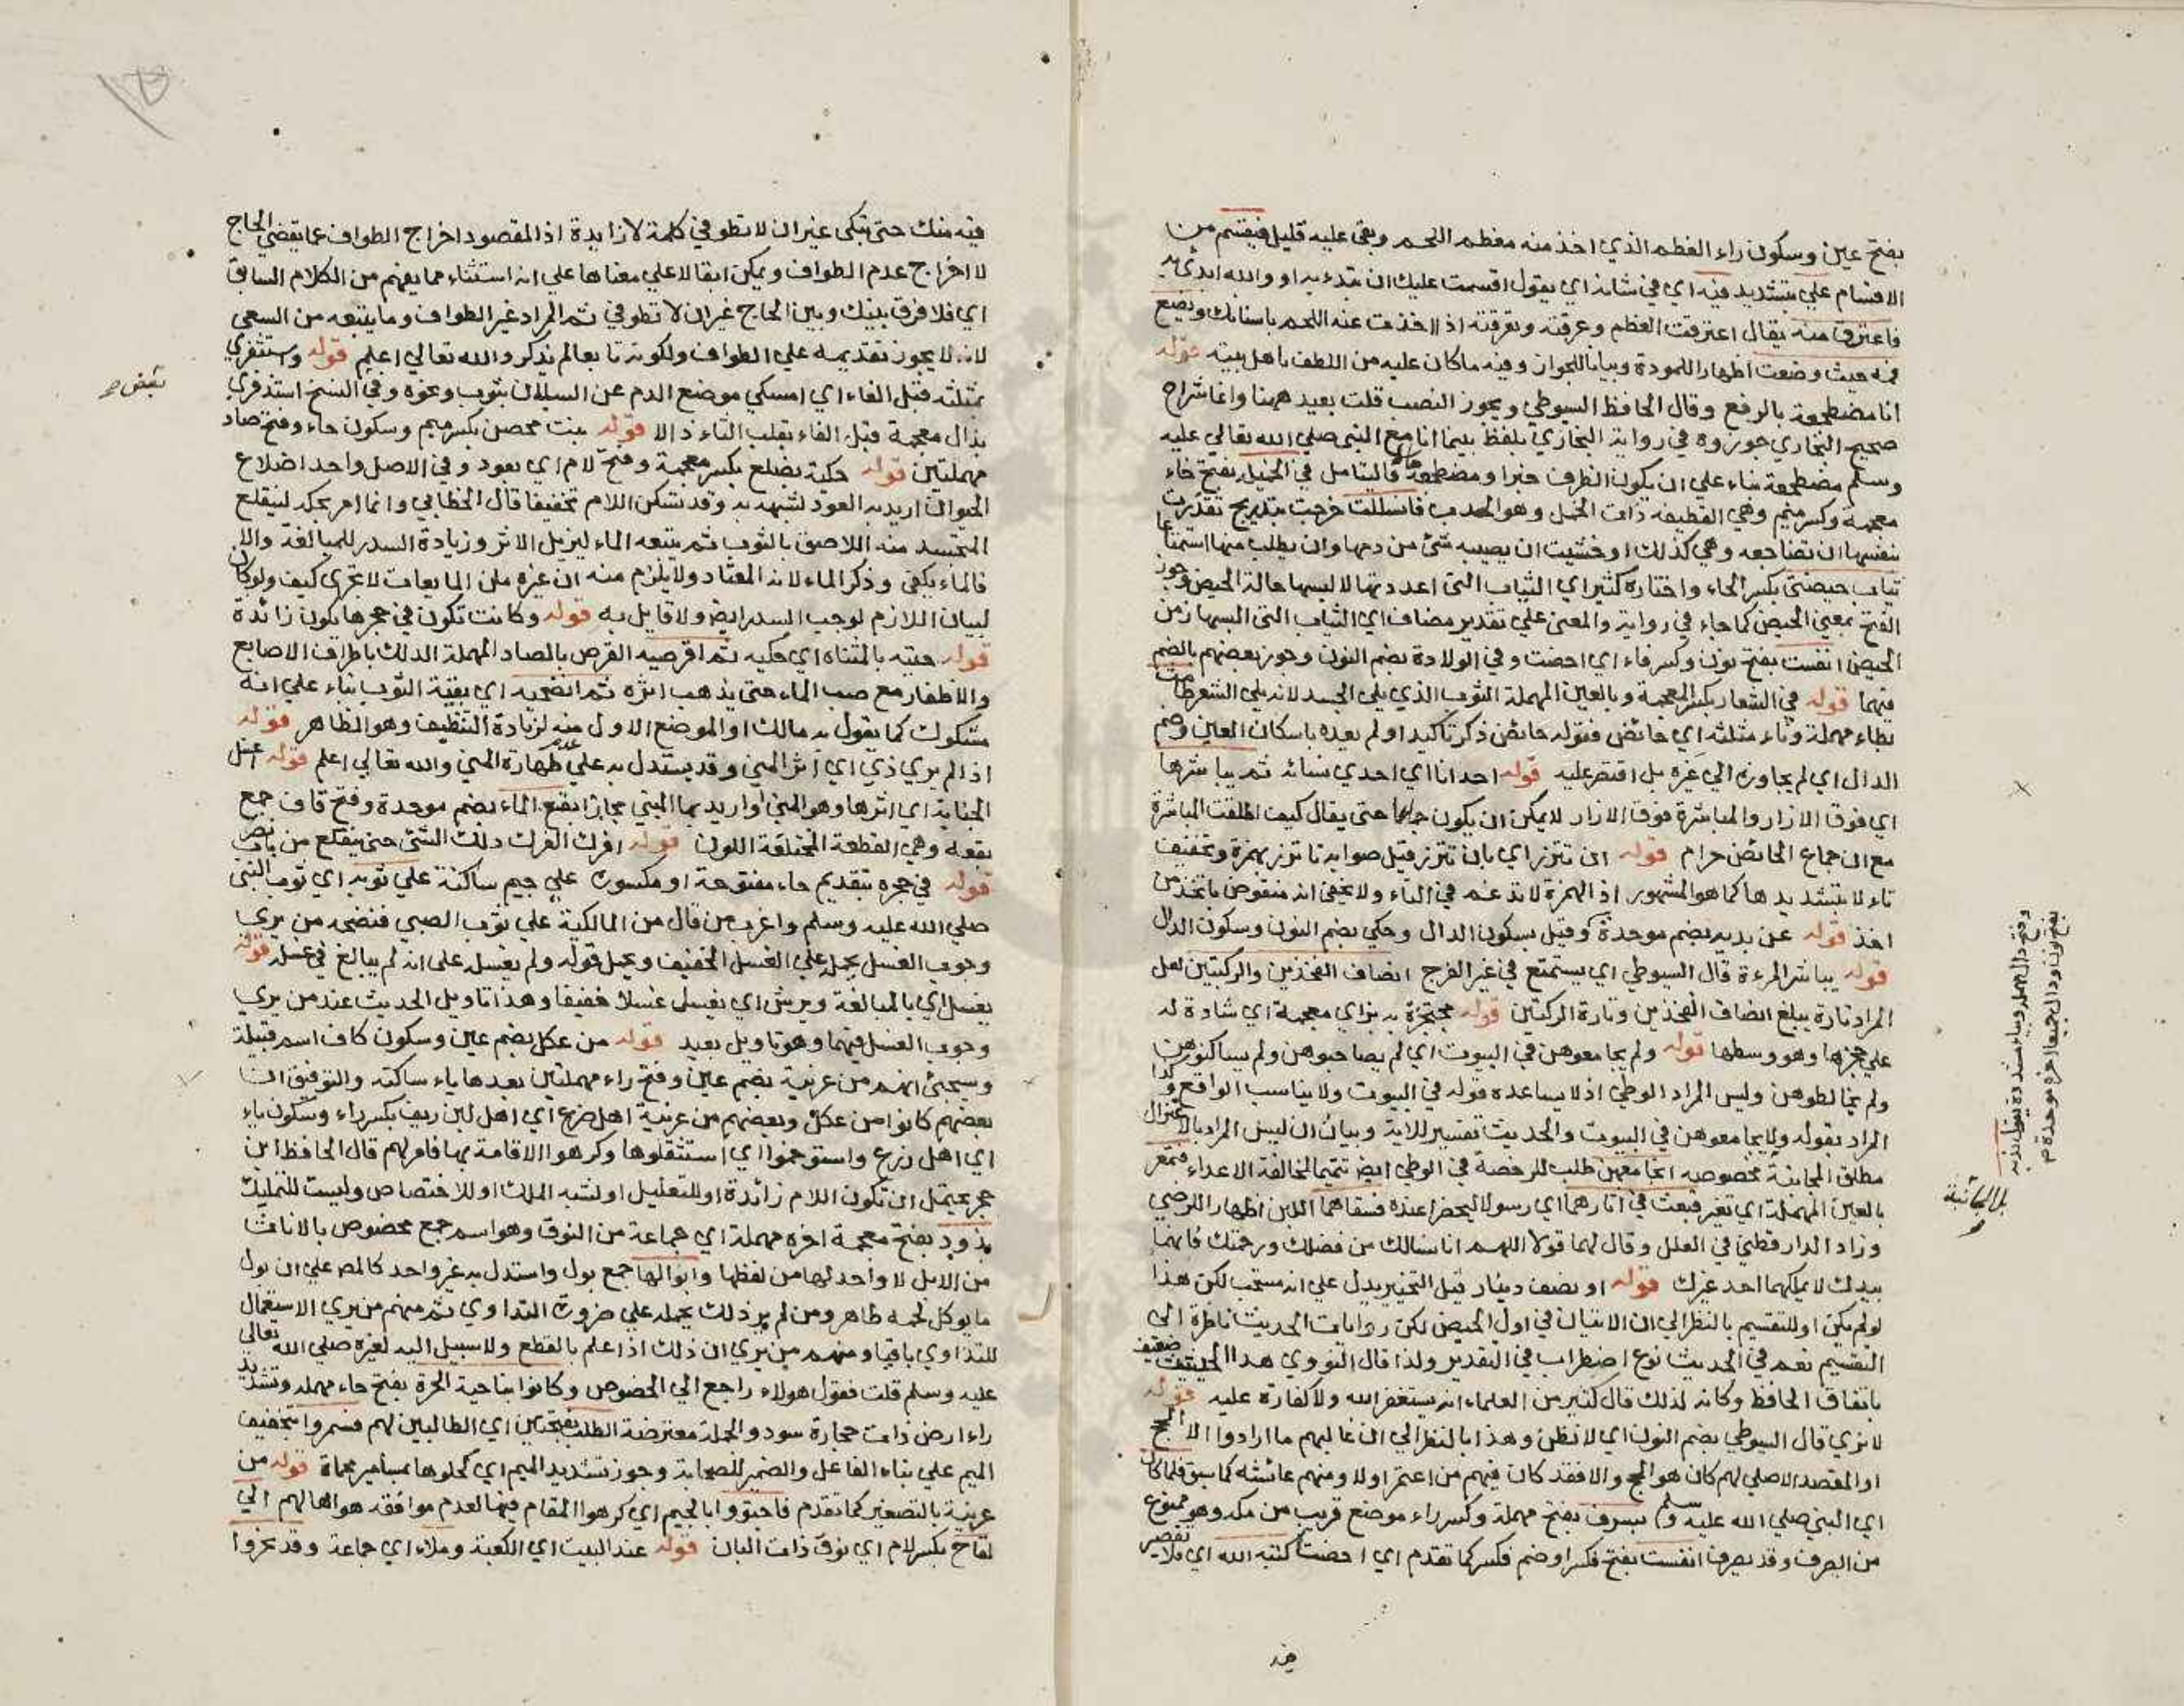 بفتح عين وسكون راء العظم الذي اخذ منه معظم اللحم وبقي عليه قليل فيقسم من
الاقسام علي بتشديد فيه اي في شانه اي يقول اقسمت عليك ان تبدء به او والله ابدئي به
فاعترق منه يقال اعترقت العظم وعرقته وتعرقته اذا اخذت عنه اللحم باسنانك ويضع
فمه حيث وضعت اظهارا للمودة وبيانا للجواز وفيه ما كان عليه من اللطف باهل بيته قوله
انا مضطجعة بالرفع وقال الحافظ السيوطي ويجوز النصب قلت بعيد ههنا وانما شراح
صحيح البخاري جوزوه في رواية البخاري بلفظ بينما انا مع النبي صلي الله تعالي عليه
وسلم مضطجعة بناء علي ان يكون الظرف خبرا ومضطجعة حالا فالتامل في الخميلة بفتح خاء
معجمة وكسر ميم وهي القطيفه ذات الخمل وهو الهدب فانسللت خرجت بتدريج تقذرت
بنفسها ان تضاجعه وهي كذلك او خشيت ان يصيبه شئ من دمها وان يطلب منها استمتاعا
ثياب حيضتي بكسر الحاء واختاره كثير اي الثياب التي اعددتها لالبسها حالة الحيض وجوز
الفتح بمعني الحيض كما جاء في رواية والمعني علي تقدير مضاف اي الثياب التي البسها زمن
الحيض انفست بفتح نون وكسر فاء اي احضت وفي الولادة بضم النون وجوز بعضهم بالضم
فيهما قوله في الشعار بكسر المعجمة وبالعين المهملة الثوب الذي يلي الجسد لانه يلي الشعر طامث
بطاء مهملة وثاء مثلثه اي حائض فقوله حائض ذكر تاكيدا ولم يعده باسكان العين وضم
الدال اي لم يجاوزه الي غيره بل اقتصر عليه قوله احدانا اي احدي نسائه ثم يباشرها
اي فوق الازار والمباشرة فوق الازار لا يمكن ان يكون جماعا حتى يقال كيف اطلقت المباشرة
مع ان جماع الحائض حرام قوله ان تتزر اي بان تتزر قيل صوابه تاتزر بهمزة وتخفيف
تاء لا بتشديدها كما هو المشهور اذ الهمزة لا تدغم في التاء ولا يخفي انه منقوض باتخذ من
اخذ قوله عن بدية بضم موحدة وقيل بسكون الدال وحكي بضم النون وسكون الدال
قوله يباشر المرءة قال السيوطي اي يستمتع في غير الفرج انصاف الفخذين والركبتين لعل
المراد تارة يبلغ انصاف الفخذين وتارة الركبتين قوله محتجزة به بزاي معجمة اي شادة له
علي حجزها وهو وسطها قوله ولم يجامعوهن في البيوت اي لم يصاحبوهن ولم يساكنوهن
ولم يخالطوهن وليس المراد الوطي اذ لا يساعده قوله في البيوت ولا يناسب الواقع وكذا
المراد بقوله ولا يجامعوهن في البيوت والحديث تفسير للاية وبيان ان ليس المراد بالاعتزال
مطلق المجانبة مخصوصه انجامعهن طلب للرخصة في الوطي ايض تتميما لمخالفة الاعداء فتمعر
بالعين المهملة اي تغير فبعث في اثارهما اي رسولا ليحضرا عنده فسقاهما اللبن اظهارا للرضي
وزاد الدارقطني في العلل وقال لهما قولا اللهم انا نسالك من فضلك ورحمتك فانهما
بيدك لا يملكهما احد غيرك قوله او نصف دينار قيل التخيير يدل علي انه مستحب لكن هذا
لو لم يكن او للتقسيم بالنظر الي ان الاتيان في اول الحيض لكن روايات الحديث ناظرة الي
التقسيم نعم في الحديث نوع اضطراب في التقدير ولذا قال النووي هذا الحديث ضعيف
باتفاق الحافظ وكانه لذلك قال كثير من العلماء انه يستغفر الله ولا كفارة عليه قوله
لا نري قال السيوطي بضم النون اي لا نظن وهذا بالنظر الي ان غالبهم ما ارادوا الا الحج
او المقصد الاصلي لهم كان هو الحج والا فقد كان فيهم من اعتمر اولا ومنهم عائشه كما سبق فلما كان
اي النبي صلي الله عليه وسلم بسرف بفتح مهملة وكسر راء موضع قريب من مكه وهو ممنوع
من الصرف وقد يصرف انفست بفتح فكسر او ضم فكسر كما تقدم اي احضت كتبه الله اي فلا تقصير
وفتح دال مهملة وياء مشددة يقال بدية
بفتح نون ودال جميعا اخره موحدة
بل المجانبة
فيه
فيه منك حتى تبكي غير ان لا تطوفي كلمة لا زايدة اذ المقصود اخراج الطواف عما يقضي الحاج
لا اخراج عدم الطواف ويمكن ابقا لا علي معناها علي انه استثناء مما يفهم من الكلام السابق
اي فلا فرق بينك وبين الحاج غير ان لا تطوفي ثم المراد غير الطواف وما يتبعه من السعي
لانه لا يجوز تقديمه علي الطواف ولكونه تابعا لم يذكر والله تعالي اعلم قوله واستثفري
بمثلثه قبل الفاء اي امسكي موضع الدم عن السيلان بثوب ونحوه وفي النسخ استذفري
بذال معجمة قبل الفاء بقلب الثاء ذالا قوله بنت محصن بكسر ميم وسكون حاء وفتح صاد
مهملتين قوله حكيه بضلع بكسر معجمة وفتح لام اي بعود وفي الاصل واحد اضلاع
الحيوان اريد به العود لشبهه به وقد تسكن اللام تخفيفا قال الخطابي وانما امر بحكه لينقلع
المتجسد منه اللاصق بالثوب ثم يتبعه الماء ليزيل الاثر وزيادة السدر للمبالغة والا
فالماء يكفي وذكر الماء لانه المعتاد ولا يلزم منه ان غيره من المايعات لا تجزي كيف ولو كان
لبيان اللازم لوجب السدر ايض ولا قايل به قوله وكانت تكون في حجرها تكون زائدة
قوله حتيه بالمثناه اي حكيه ثم اقرصيه القرص بالصاد المهملة الدلك باطراف الاصابع
والاظفار مع صب الماء حتى يذهب اثره ثم انضحيه اي بقية الثوب بناء علي انه
مشكوك كما يقول به مالك او الموضع الاول منه لزيادة التنظيف وهو الظاهر قوله
اذا لم يري ذي اي اثر المني وقد يستدل به علي عدم طهارة المني والله تعالي اعلم قوله اغسل
الجنابة اي اثرها وهو المني او اريد بها المني مجازا بقع الماء بضم موحدة وفتح قاف جمع
بقعه وهي القطعة المختلفة اللون قوله افرك الفرك دلك الشئ حتى ينقلع من باب نصر
قوله في حجره بتقديم حاء مفتوحة او مكسورة علي جيم ساكنة علي ثوبه اي ثوب النبي
صلي الله عليه وسلم واغرب من قال من المالكية علي ثوب الصبي فنضحه من يري
وجوب الغسل يحمله علي الغسل الخفيف ويحمل قوله ولم يغسله على انه لم يبالغ في غسله قوله
يغسل اي بالمبالغة ويرش اي يغسل غسلا خفيفا وهذا تاويل الحديث عند من يري
وجوب الغسل فيهما وهو تاويل بعيد قوله من عكل بضم عين وسكون كاف اسم قبيلة
وسيجئ انهم من عرينة بضم عين وفتح راء مهملتين بعدها ياء ساكنه والتوفيق ان
بعضهم كانوا من عكل وبعضهم من عرينة اهل ضرع اي اهل لبن ريف بكسر راء وسكون ياء
اي اهل زرع واستوخموا اي استثقلوها وكرهوا الاقامة بها فامر لهم قال الحافظ ابن
حجر يحتمل ان تكون اللام زائدة او للتعليل او لشبه الملك او للاختصاص وليست للتمليك
بذود بفتح معجمة اخره مهملة اي جماعة من النوق وهو اسم جمع مخصوص بالاناث
من الابل لا واحد لها من لفظها وابوالها جمع بول واستدل به غير واحد كالمص علي ان بول
ما يوكل لحمه طاهر ومن لم ير ذلك يحمله علي ضرورة التداوي ثم منهم من يري الاستعمال
للتداوي باقيا ومنهم من يري ان ذلك اذا علم بالقطع ولا سبيل اليه لغيره صلي الله تعالي
عليه وسلم قلت فقول هولاء راجع الي الخصوص وكانوا بناحية الحرة بفتح حاء مهملة وتشديد
راء ارض ذات حجارة سود والجملة معترضة الطلب بفتحتين اي الطالبين لهم فسمروا بتخفيف
الميم علي بناء الفاعل والضمير للصحابة وجوز تشديد الميم اي كحلوها بمسامير محماة قوله من
عرينة بالتصغير كما تقدم فاجتووا بالجيم اي كرهوا المقام فيها لعدم موافقه هوائها لهم الي
لقاح بكسر لام اي نوق ذات البان قوله عند البيت اي الكعبة وملاء اي جماعة وقد نحروا